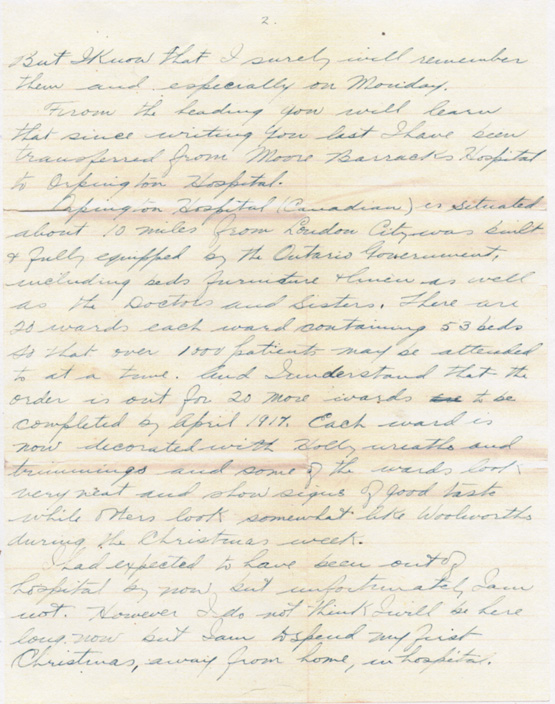 2.
But I Know that I surely will remember
them and especially on Monday.
From the heading you will learn
that since writing you last I have been
transferred from Moore Barracks Hospital
to Orpington Hospital.
Orpington Hospital (Canadian) is situated
about 10 miles from London City was built
& fully equipped by the Ontario Government,
including beds furniture & linen as well
as the Doctors and Sisters. There are
20 wards each ward containing 53 beds
so that over 1000 patients may be attended
to at a time. And I understand that the
order is out for 20 more wards to be
completed by April 1917. Each ward is
now decorated with Holly wreaths and
trimmings and some of the wards look
very neat and show signs of good taste
while others look somewhat like Woolworths
during the Christmas week.
I had expected to have been out of
hospital by now, but unfortunately I am
not. However I do not think I will be here
long now but I am to spend my first
Christmas, away from home, in hospital.